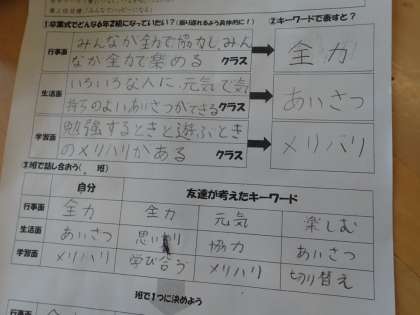 ①卒業式でどんな6年2組になっていたい？（振り返れるよう具体的に！）
②キーワードで表すと？
行事面
みんなが全力で協力し、みん
なが全力で楽める クラス
全力
生活面
いろいろな人に、元気で気
持ちのよいあいさつができる クラス
あいさつ
学習面
勉強するときと遊ぶとき
のメリハリがある クラス
メリハリ
③班で話し合おう（ 班）
自分 友達が考えたキーワード
行事面 全力 全力 元気 楽しむ
生活面 あいさつ 思いやり 協力 あいさつ
学習面 メリハリ 学び合う メリハリ 切り替え
班で1つに決めよう